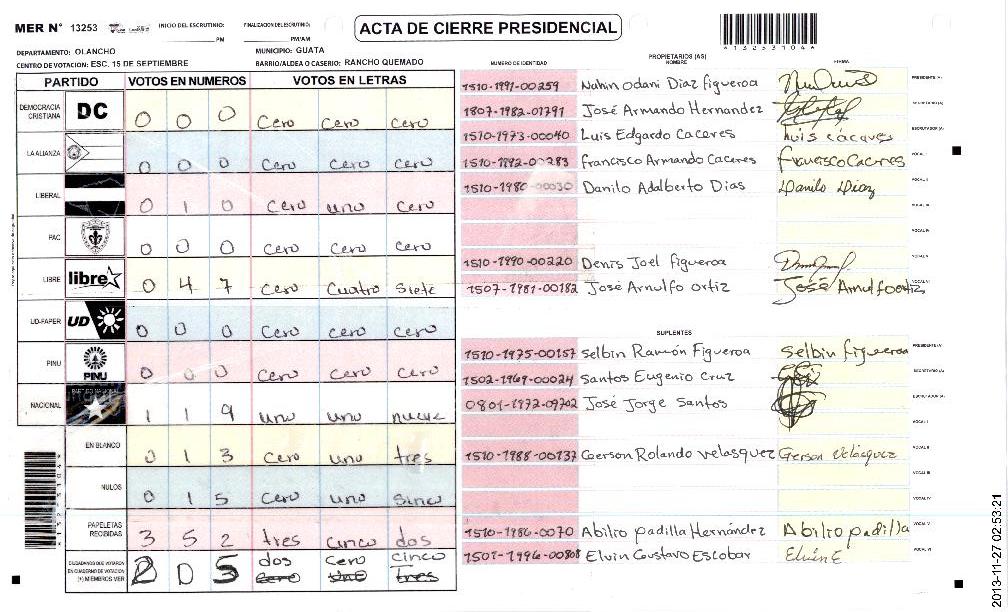 MER Nº 13253
INICIO DEL ESCRUTINIO: PM
FINALIZACION DEL ESCRUTINIO: PM/AM
ACTA DE CIERRE PRESIDENCIAL
DEPARTAMENTO: OLANCHO
MUNICIPIO: GUATA
CENTRO DE VOTACION: ESC. 15 DE SEPTIEMBRE
BARRIO/ALDEA O CASERIO: RANCHO QUEMADO
PARTIDO VOTOS EN NUMEROS VOTOS EN LETRAS
DEMOCRACIA CRISTIANA DC 0 0 0 Cero Cero Cero
LA ALIANZA 0 0 0 Cero Cero Cero
LIBERAL 0 1 0 Cero uno Cero
PAC 0 0 0 Cero Cero Cero
LIBRE libre 0 4 7 Cero Cuatro Siete
UD-FAPER UD 0 0 0 Cero Cero Cero
PINU PINU 0 0 0 Cero Cero Cero
NACIONAL PARTIDO NACIONAL 1 1 9 uno uno nueve
EN BLANCO 0 1 3 Cero uno tres
NULOS 0 1 5 Cero uno Sinco
PAPELETAS RECIBIDAS 3 5 2 tres cinco dos
CIUDADANOS QUE VOTARON EN CUADERNO DE VOTACION (+) MIEMBROS MER 2 0 5 dos cero cinco
cero uno tres
NUMERO DE IDENTIDAD PROPIETARIOS (AS) NOMBRE FIRMA
1510-1991-00259 Nahin Odani Diaz figueroa PRESIDENTE (A)
1807-1982-01791 José Armando Hernandez SECRETARIO (A)
1510-1973-00040 Luis Edgardo Caceres Luis cáceres ESCRUTADOR (A)
1510-1992-00283 francisco Armando Caceres francisco Caceres VOCAL I
1510-1980-00030 Danilo Adalberto Dias Danilo Diaz VOCAL II
VOCAL III
VOCAL IV
1510-1990-00220 Denis Joel figueroa VOCAL V
1507-1981-00182 José Arnulfo ortiz José Arnulfo ortiz VOCAL VI
SUPLENTES
1510-1975-00157 Selbin Ramón Figueroa Selbin figueroa PRESIDENTE (A)
1502-1967-00024 Santos Eugenio Cruz SECRETARIO (A)
0801-1972-09702 José Jorge Santos ESCRUTADOR (A)
VOCAL I
1510-1988-00137 Gerson Rolando velasquez Gerson Velásquez VOCAL II
VOCAL III
VOCAL IV
1510-1986-0070 Abilio padilla Hernández Abilio padilla VOCAL V
1501-1996-00808 Elvin Gustavo Escobar Elvin E VOCAL VI
132531041
2013-11-27 02:53:21